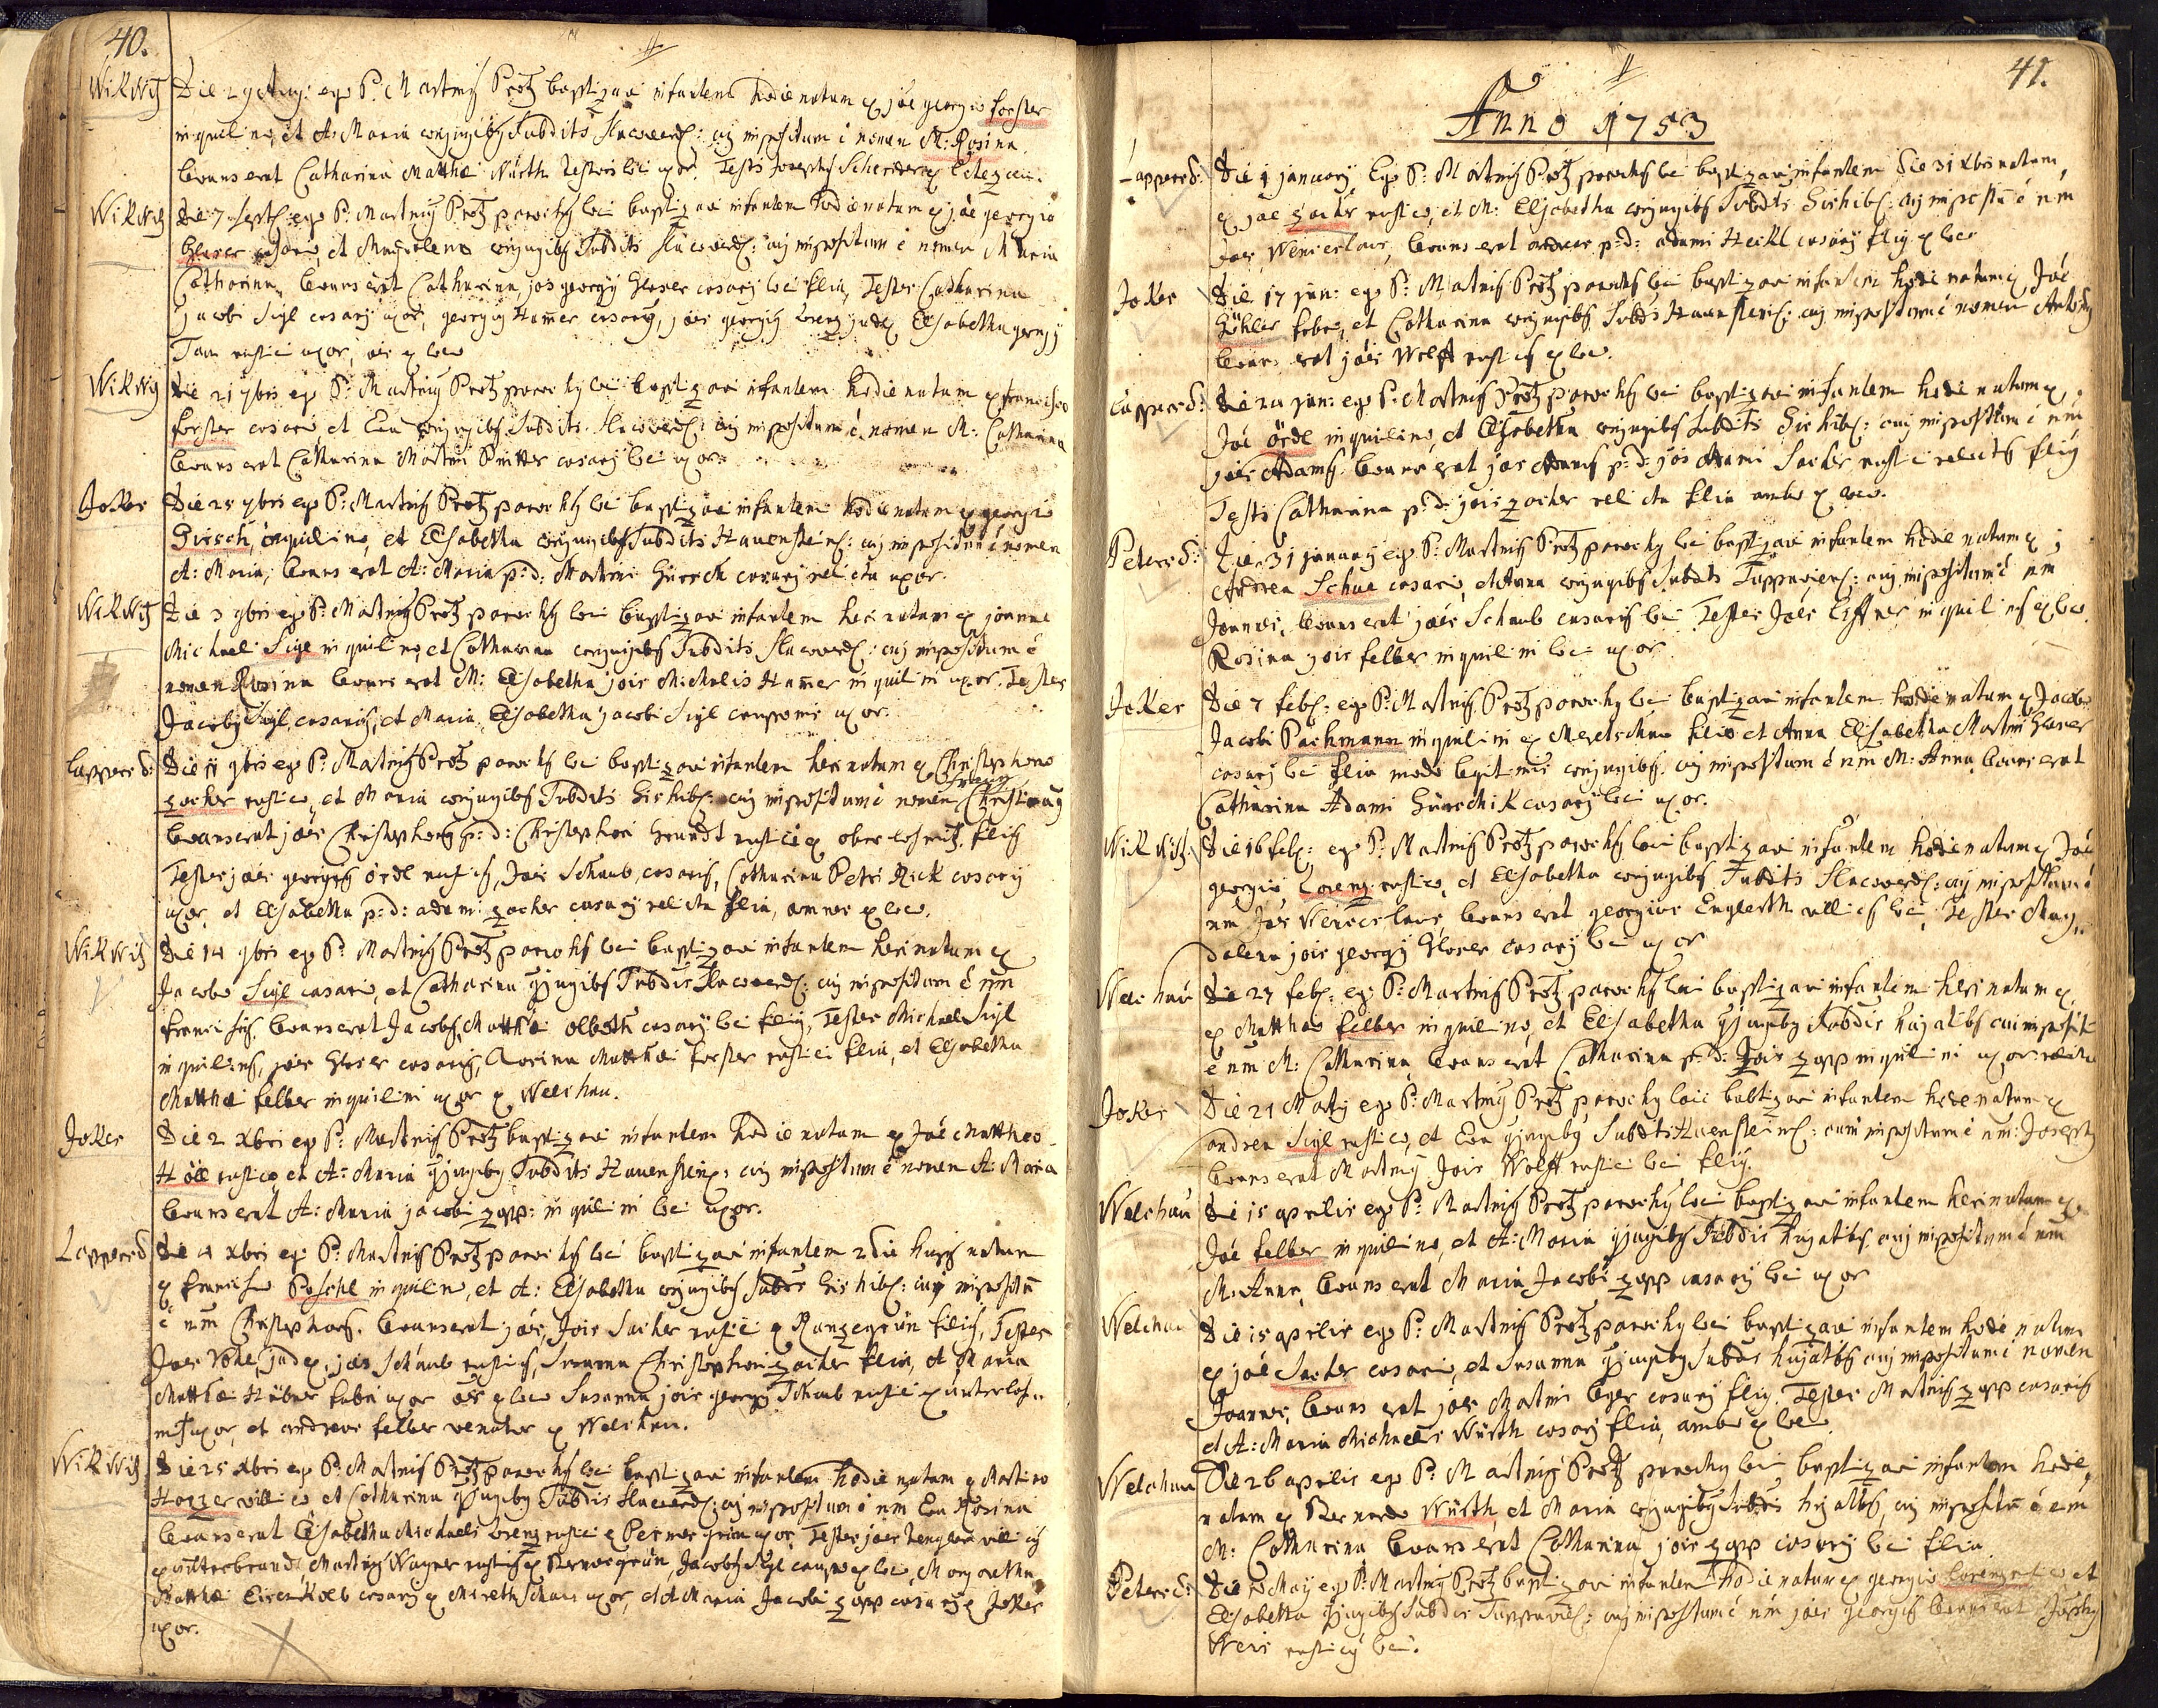 40.
Wikwitz
Die 29 Aug: ego P: Martinus Protz baptizavi infantem hodie natum ex Joe georgio forster
inquilino, et A: Maria conjugibus Subditis Hacoverd: cui impositum e nomen M: Rosina.
Levans erat Catharina Matthæi Würth Textoris loci uxor. Testis
Wikwitz
Die 7 Sept: ego P: Martinus Protz parochus loci baptizavi infantem hodie natum ex Joe georgio
Gloser casario, et Magdalena conjugibus Subditis Hacoverd: cui impositum e nomen Maria
Catharina, Levans erat Catharina Jois georgy Gloser casary loci filia, Testes Catharina
Jacobi Sigl casary uxor, georgius Hamer casarius, Joes georgius Lorenz judex Elisabetha georgy
rustici uxor, oes ex loco
Wikwitz
Die 21 7bris ego P: Martinus Protz parochus loci baptizavi infantem hodie natum ex francisco
forster casario et Eva conjugibus Subditis Hacoverd: cui impositum e nomen M: Catharina
Levans erat Catharina Martini casary loci uxor.
Joker
Die 25 7bris ego P: Martinus Protz parochus loci baptizavi infantem hodie natum ex georgio
Girsch, inquilino, et Elisabetha conjugibus Subditis Hauenstein: cui impositum e nomen
A: Maria, Levans erat A: Maria p: d: Martini casary relicta uxor.
Wikwitz
Die 3 9bris ego P: Martinus Protz parochus loci baptizavi infantem heri natum ex joanne
Michael Sigl inquilino, et Catharina conjugibus Subditis Hacoverd: cui impositum e
nomen Rosina Levans erat M: Elisabetha jois Michalis Hamer inquilini uxor. Testes
Jacobus Sigl casarius, et Maria Elisabetha jacobi Sigl cauponis uxor.
Lappersd:
Die 11 9bris ego P: Martinus Protz parochus loci baptizavi infantem heri natum ex Christophoro
zarher rustico, et Maria conjugibus Subditis Gishib: cui impositum e nomen
Levans erat joes Christophorus p: d: Christophori Grundt rustici ex oberlosnitz filius
Testes joes georgius ördl rusticus, Joes Schaub, casarius, Catharina Petri Rick casary
uxor, et Elisabetha p: d: adami zarher casary relicta filia, omnes ex loco.
Wikwitz
Die 14 9bris ego P: Martinus Protz parochus loci baptizavi infantem heri natum ex
Jacobo Sigl casario, et Catharina conjugibus Subdis Hacoverd: cui impositum e nm
franciscus. Levans erat Jacobus Matthæi olberth casary loci filius, Testes Michael Sigl
inquilinus, joes Gloser casarius, Rosina Matthæi forster rustici filia, et Elisabetha
Matthæi felber inquilini uxor ex Welchau.
Joker
Die 2 Xbris ego P: Martinus Protz baptizavi infantem hodie natum ex Joe Mattheo
Höll rustico, et A: Maria conjugibus Subditis Hauenstein: cui impositum e nomen A: Maria
Levans erat A: Maria jacobi zapp: inquilini loci uxor.
Lappersd
Die 4 Xbris ego P: Martinus Protz parochus loci baptizavi infantem 2 die hujus natum
ex francisco Poschl inquilino, et A: Elisabetha conjugibus Subdis Gishib: cui impositum
e nm Christophorus. Levans erat joes, Jois Sacher rustici ex Ranzengrün filius, Testes
Joes judex, joes Schaub rusticus, Susanna Christophori zarher filia, et Maria
Matthæi Hübner fabri uxor oes ex loco Susanna jois georgy Schaub rustici ex unterlos„
nitz uxor, et andreas felber venator ex Welchau.
Wikwitz
Die 25 Xbris ego P: Martinus Protz parochus loci baptizavi infantem hodie natum ex Martino
Hozzer villico et Catharina conjugibus Subdis Hacoverd: cui impositum e nm Eva Rosina
Levans erat Elisabetha Michaelis Lorenz rustici ex uxor, Testes joes villicus
ex unterbrand, Martinus Wagner rusticus ex, Jacobus Sigl caupo ex loco, Margaretha
Matthæi casary ex Meretschau uxor, et A Maria Jacobi zapp casary ex Joker
uxor.
41.
Anno 1753
Lappersd:
Die 1 january, Ego P: Martinus Protz parochus loci baptizavi infantem die 31 Xbris natum,
ex joe zarher rustico, et M: Elisabetha conjugibus Subdts Gishib: cui impositu e nm
Joes, Wenceslaus, Levans erat andreas p: d: adami Heckl casary filius ex loco
Joker
Die 17 jan: ego P: Martinus Protz parochus loci baptizavi infantem hodie natum ex Joe
Güchler fabro, et Catharina conjugibus Subdts Hauenstein: cui impositum e nomen Antonius
Levans erat joes Wolff rusticus ex loco.
Lappersd:
Die 24 jan: ego P: Martinus Protz parochus loci baptizavi infantem hodie natum ex
Joe ördl inquilino, et Elisabetha conjugibus Subdits Gishib: cui impositum e nm
joes Adamus. Levans erat joes Adamus p: d: jois Adami Sacher rustici relictus filius
Testis Catharina p: d: jois zarher relicta filia ambo ex loco.
Petersd:
Die 31 january ego P: Martinus Protz parochus loci baptizavi infantem hodie natum ex
Andrea Schue casario, et Anna conjugibus Subdts Tuppaviens: cui impositum e nm
Joannes, Levans erat joes Schaub casarius loci Testes Joes Liffner inquilinus ex loco.
Rosina jois felber inquilini loci uxor.
Joker
Die 7 feb: ego P: Martinus Protz parochus loci baptizavi infantem hodie natum ex Jacobo
Jacobi Pachmann inquilini ex Meretschau filio et Anna Elisabetha Martini Gloser
casary loci filia modo legitimis conjugibus. cui impositum e nm M: Anna, Levans erat
Catharina Adami casary loci uxor.
Wikwitz
Die 16 feb: ego P: Martinus Protz parochus loci baptizavi infantem hodie natum ex Joe
georgio Lorenz rustico, et Elisabetha conjugibus Subdts Hacoverd: cui impositum e
nm Joes Wenceslaus, Levans erat georgius Englerth villicus loci, Testes Mag„
dalena jois georgy Gloser casary loci uxor
Welchau
Die 27 feb: ego P: Martinus Protz parochus loci baptizavi infantem heri natum ex
ex Matthæo felber inquilino, et Elisabetha conjugibus Subdis hujatibus cui imposit
e nm M: Catharina, Levans erat Catharina p: d: Jois zapp inquilini uxor relicta
Joker
Die 21 Marty ego P: Martinus Protz parochus loci baptizavi infantem hodie natum ex
andrea Sigl rustico, et Eva conjugibus Subdts Hauenstein: cui impositum e nm: Josephus
Levans erat Martinus Jois Wolff rustici loci filius.
Welchau
Die 15 aprilis ego P: Martinus Protz parochus loci baptizavi infantem heri natum ex
Joe felber inquilino, et A: Maria conjugibus Subdis hujatibus cui impositum e nm
M: Anna, Levans erat Maria Jacobi zapp casary loci uxor
Welchau
Die 15 aprilis ego P: Martinus Protz parochus loci baptizavi infantem hodie natum
ex joe Sacher casario, et Susanna conjugibus Subdis hujatibus cui impositum e nomen
Joannes, Levans erat joes Martini Leger casary filius. Testes Martinus zapp casarius
et A: Maria Michaelis Würth casary filia, ambo ex loco.
Welchau
Die 26 aprilis ego P: Martinus Protz parochus loci baptizavi infantem hodie
natum ex Bernardo Würth, et Maria conjugibus Subdis hujatibus, cui impositu e nm
M: Catharina Levans erat Catharina jois zapp casary loci filia
Petersd:
Die May ego P: Martinus Protz baptizavi infantem hodie natum ex georgio Lorenz rustico et
Elisabetha conjugibus Subdis Tuppaviens: cui impositum e nm joes georgius Levans erat Josephus
Weis rusticus loci.